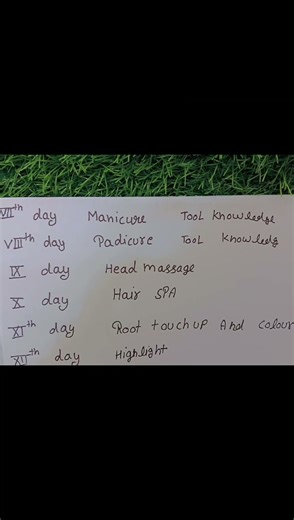 VIIth day Manicure Tool knowledge
VIIIth day Padicure Tool knowledg
IX day Head massage
X day Hair SPA
XIth day Root touch up And colour
XIIth day Highlight